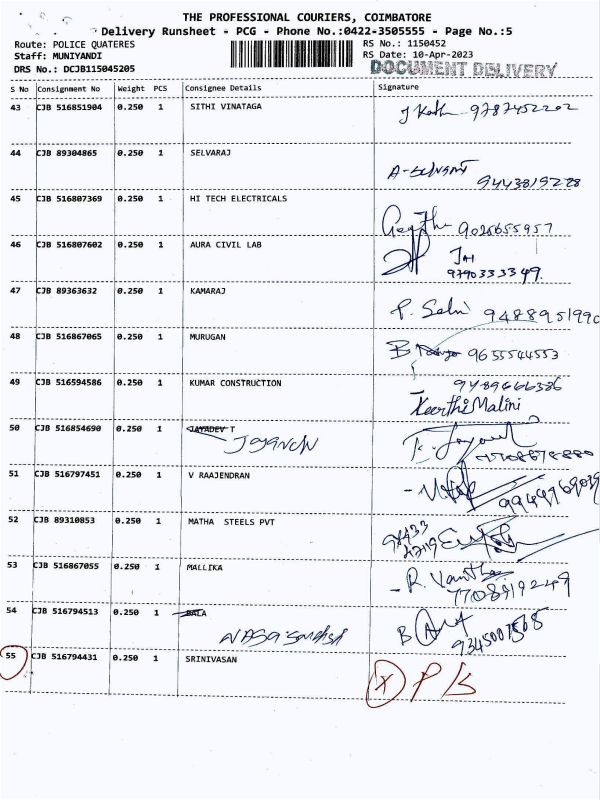 THE PROFESSIONAL COURIERS, COIMBATORE
Delivery Runsheet - PCG - Phone No.:0422-3505555 - Page No.:5
Route: POLICE QUATERES RS No.: 1150452
Staff: MUNIYANDI RS Date: 10-Apr-2023
DRS No.: DCJB115045205 DOCUMENT DELIVERY
S No Consignment No Weight PCS Consignee Details Signature
43 CJB 516851904 0.250 1 SITHI VINATAGA 9787452202
44 CJB 89304865 0.250 1 SELVARAJ
45 CJB 516807369 0.250 1 HI TECH ELECTRICALS
46 CJB 516807602 0.250 1 AURA CIVIL LAB
9790333349
47 CJB 89363632 0.250 1 KAMARAJ P. Selvi
48 CJB 516867065 0.250 1 MURUGAN B 9655544553
49 CJB 516594586 0.250 1 KUMAR CONSTRUCTION
Keerthi Malini
50 CJB 516854690 0.250 1 JAYADEV T
51 CJB 516797451 0.250 1 V RAAJENDRAN
52 CJB 89310853 0.250 1 MATHA STEELS PVT
53 CJB 516867055 0.250 1 MALLIKA R. Vantha
7708919249
54 CJB 516794513 0.250 1 BALA B
55 CJB 516794431 0.250 1 SRINIVASAN X